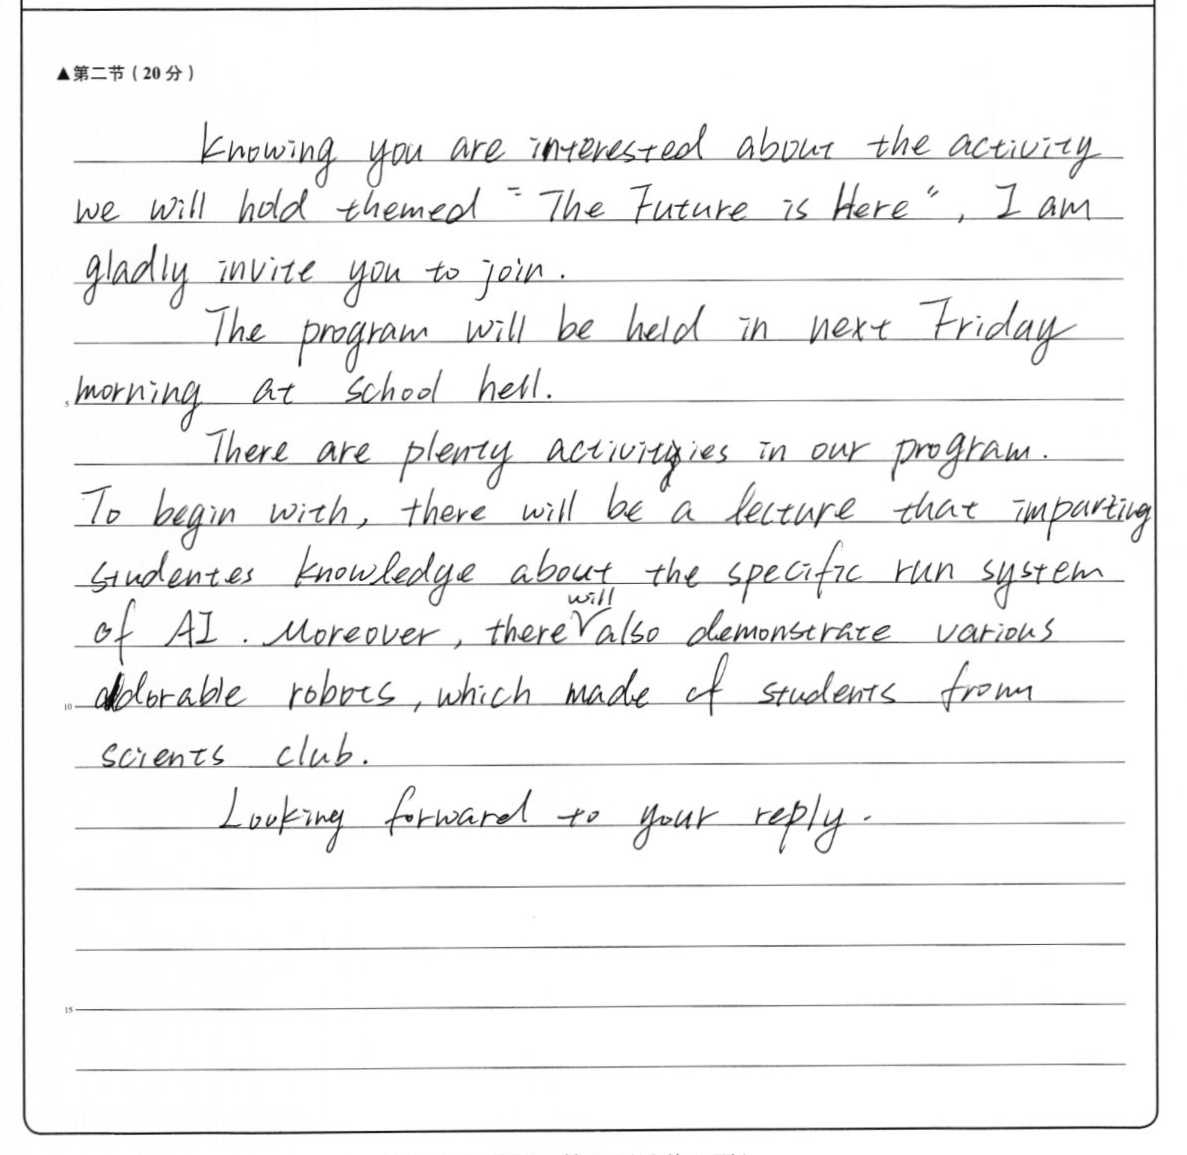 ▲第二节（20分）
Knowing you are interested about the activity
we will hold themed "The Future is Here", I am
gladly invite you to join.
The program will be held in next Friday
5 morning at school hell.
There are plenty activityies in our program.
To begin with, there will be a lecture that imparting
studentes knowledge about the specific run system
will
of AI. Moreover, there also demonstrate various
10 adorable robots, which made of students from
scients club.
Looking forward to your reply.
15